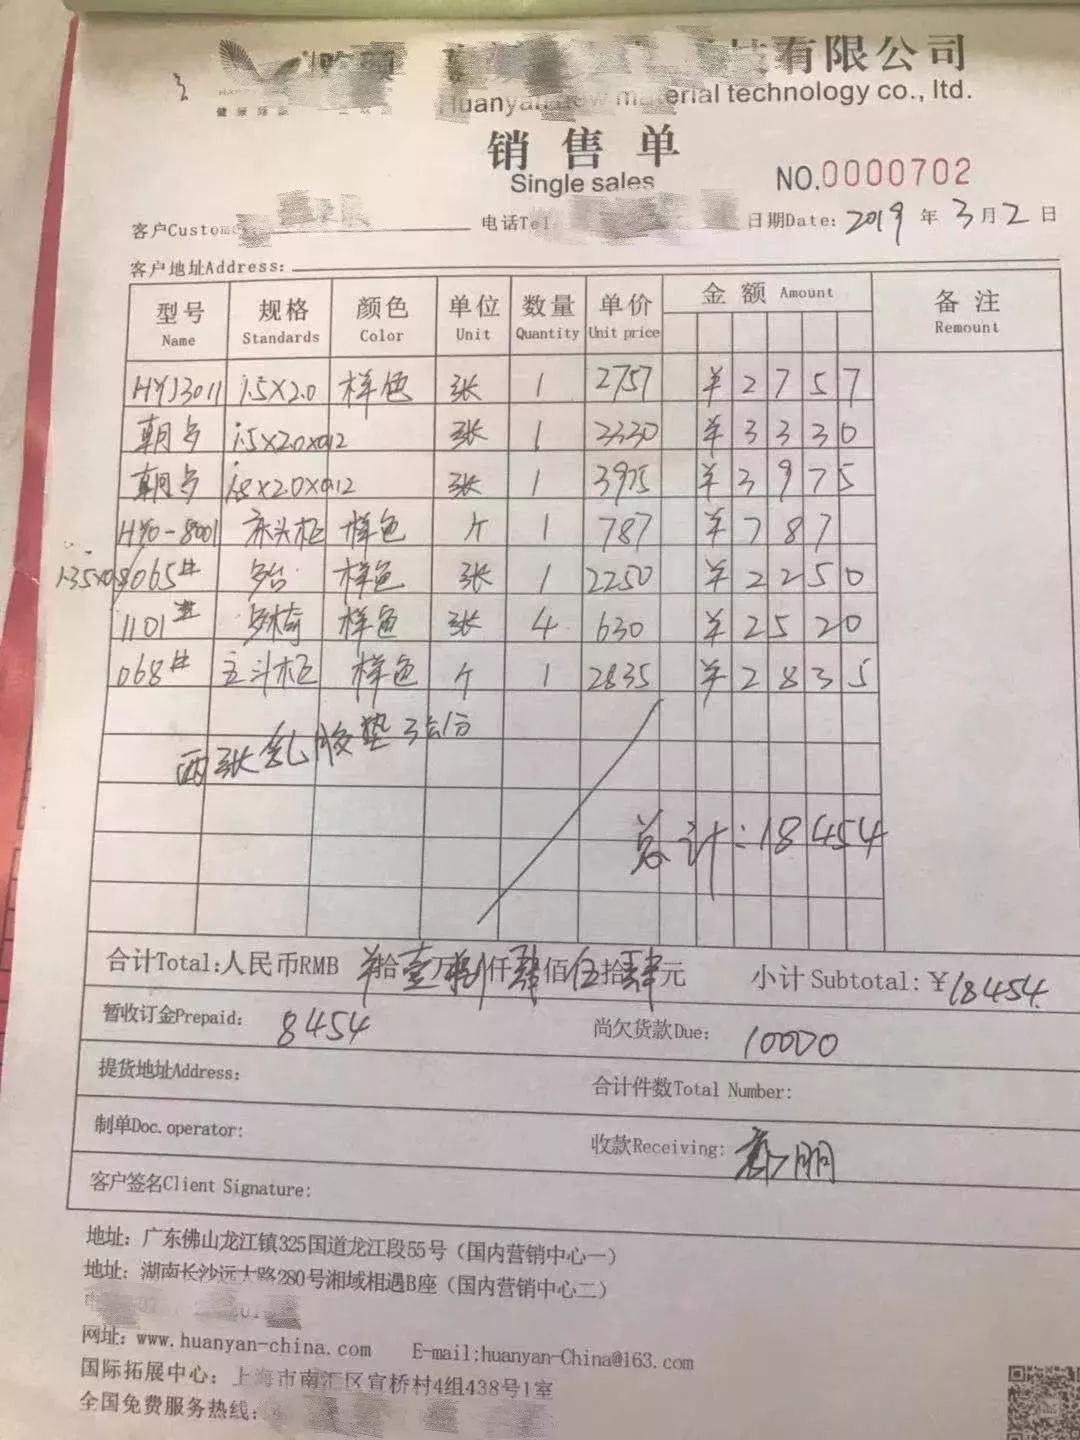 有限公司
Huanyan new material technology co., ltd.
销售单
Single sales
NO.0000702
客户Custome 电话Tel 日期Date: 2019 年 3 月 2 日
客户地址Address:
型号 规格 颜色 单位 数量 单价 金额 Amount 备注
Name Standards Color Unit Quantity Unit price Remount
HYJ3011 1.5×2.0 样色 张 1 2757 ¥2757
1.5×2.0×0.12 张 1 3330 ¥3330
1.8×2.0×0.12 张 1 3975 ¥3975
HY0-8001 床头柜 样色 个 1 787 ¥787
8065# 样色 张 1 2250 ¥2250
1101# 样色 张 4 630 ¥2520
068# 五斗柜 样色 个 1 2835 ¥2835
两张乳胶垫3公分
总计:18454
合计Total:人民币RMB ¥拾壹万捌仟肆佰伍拾肆元 小计Subtotal:¥18454
暂收订金Prepaid: 8454 尚欠货款Due: 10000
提货地址Address: 合计件数Total Number:
制单Doc.operator: 收款Receiving:
客户签名Client Signature:
地址: 广东佛山龙江镇325国道龙江段55号 (国内营销中心一)
地址: 湖南长沙远大路280号湘域相遇B座 (国内营销中心二)
网址: www.huanyan-china.com E-mail:huanyan-China@163.com
国际拓展中心: 上海市南汇区宣桥村4组438号1室
全国免费服务热线: